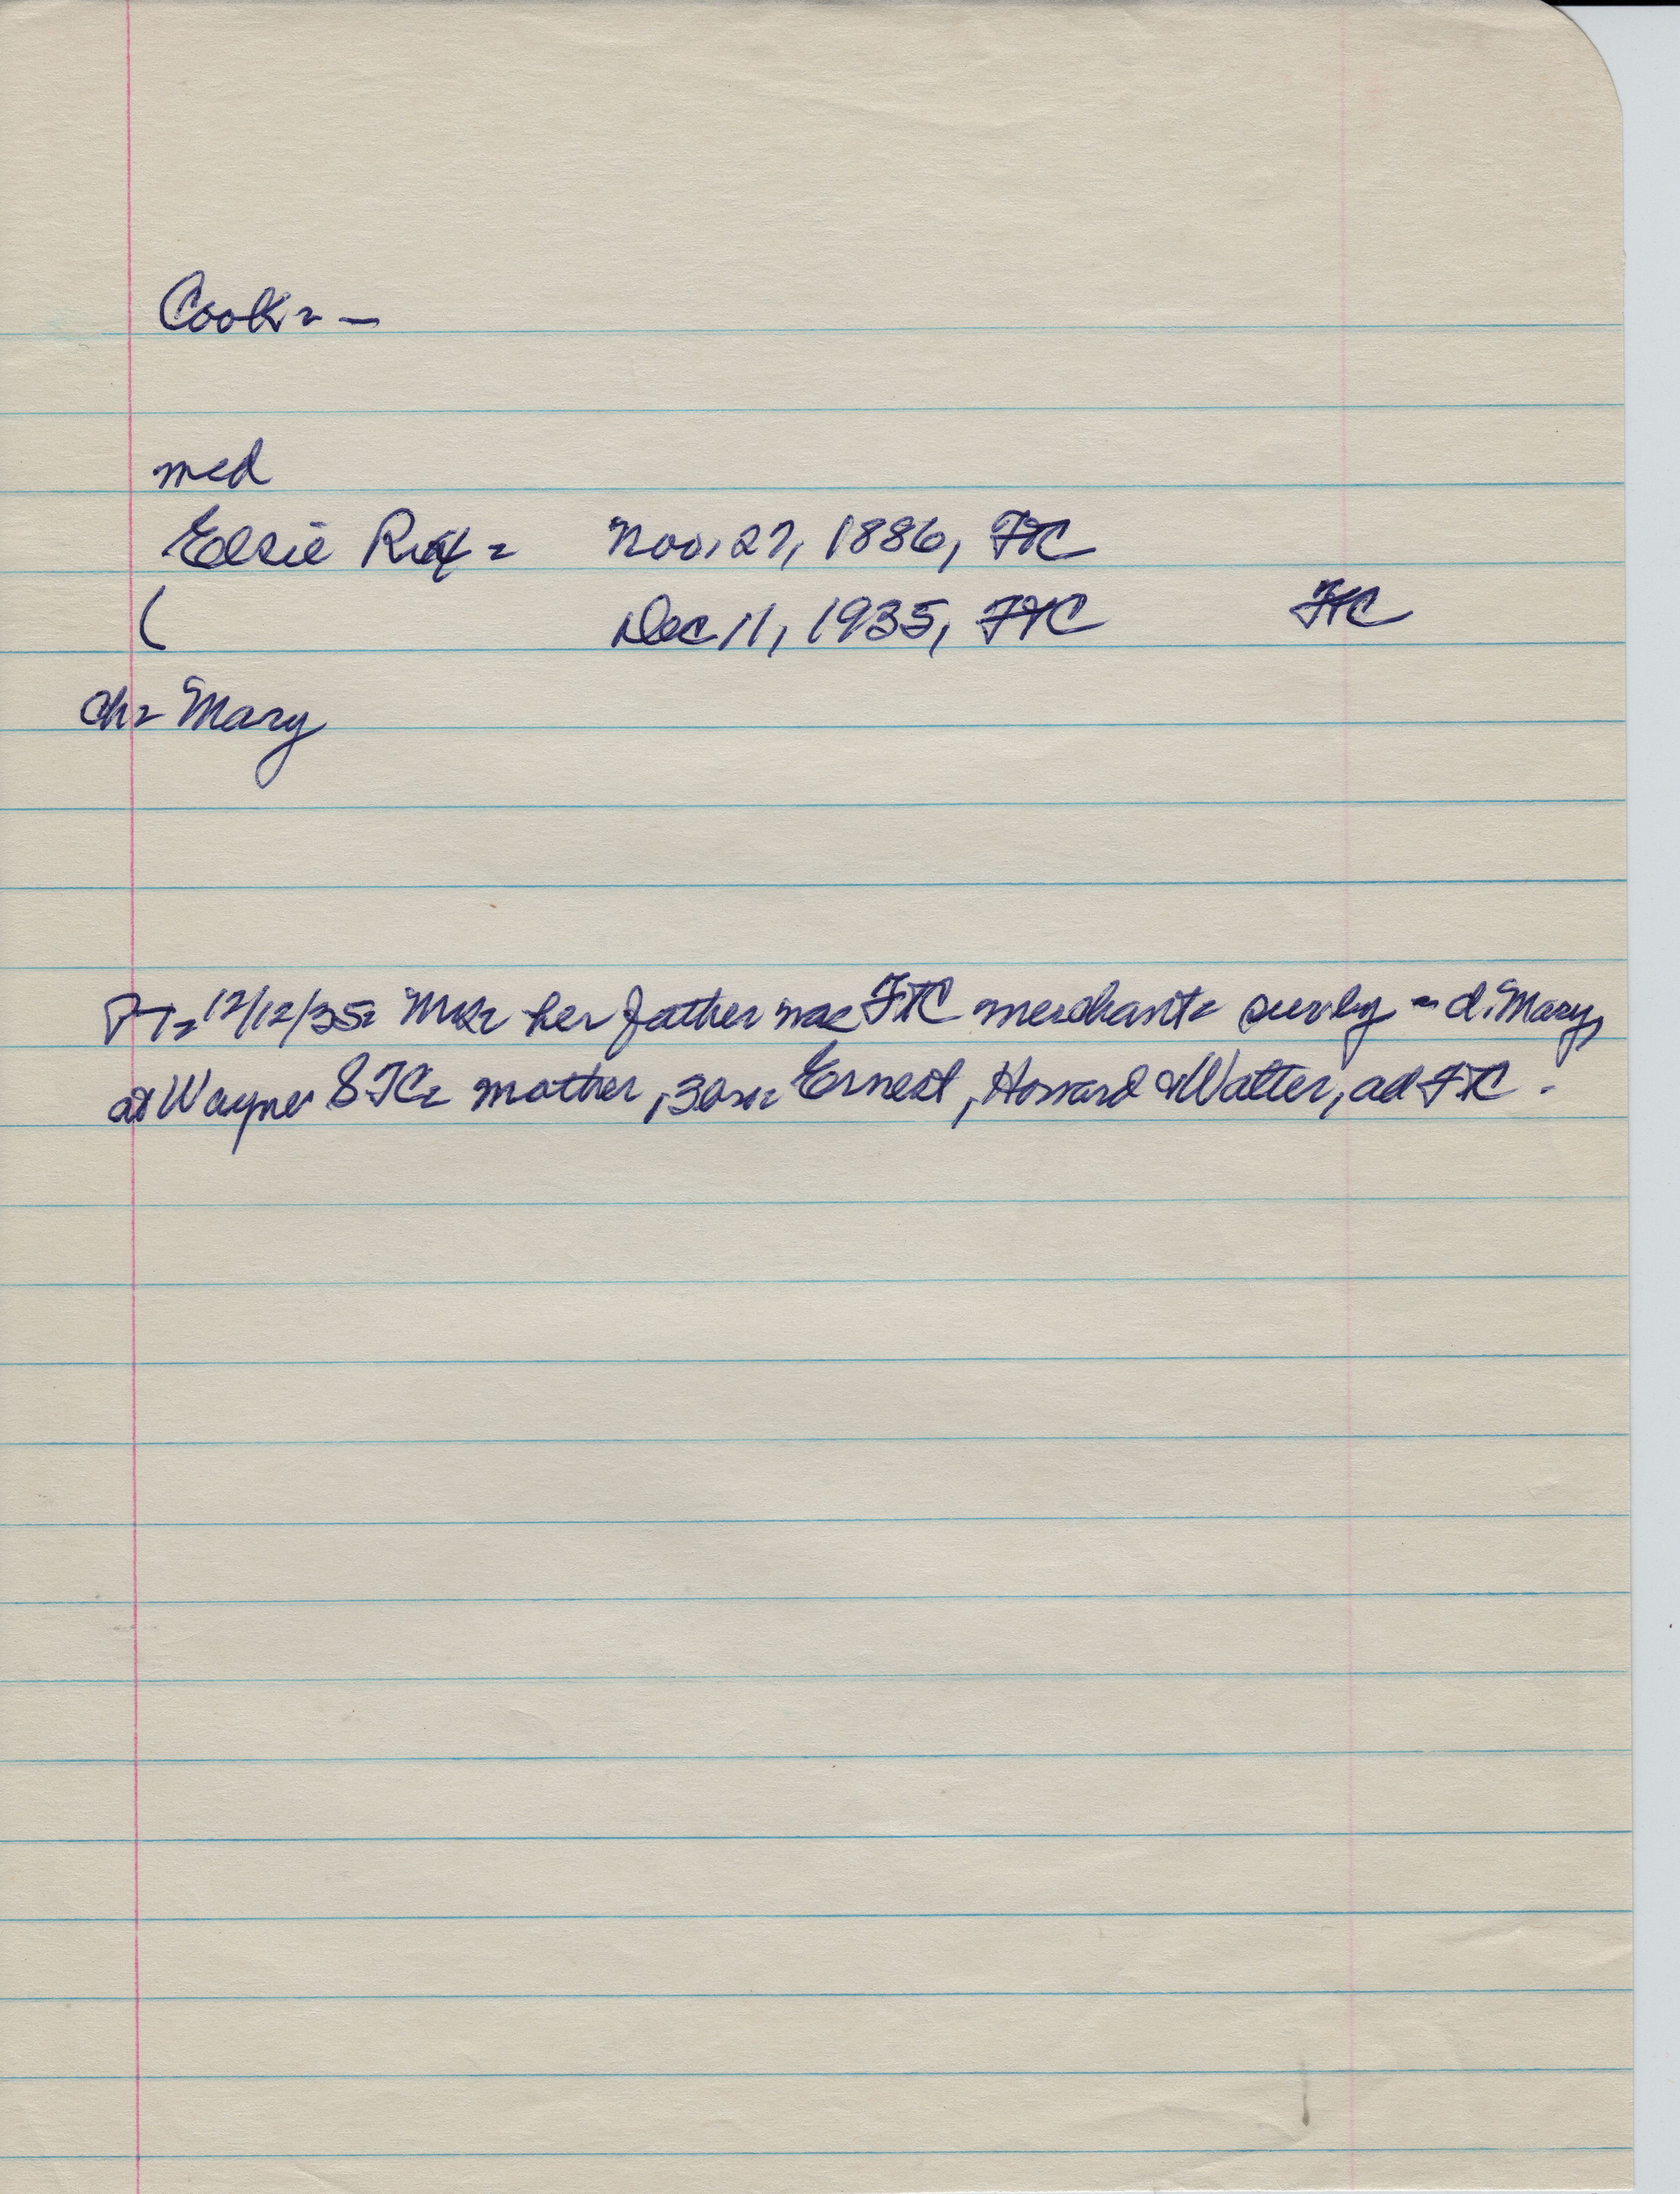 Cook = —
med
Elsie Rix = Nov. 27, 1886, FTC
( Dec 11, 1935, FTC FTC
ch = Mary
PT = 12/12/35 = her father was FTC merchant = surv by = d. Mary,
at Wayne STC = mother, 3 bros = Ernest, Howard & Walter, all FTC.